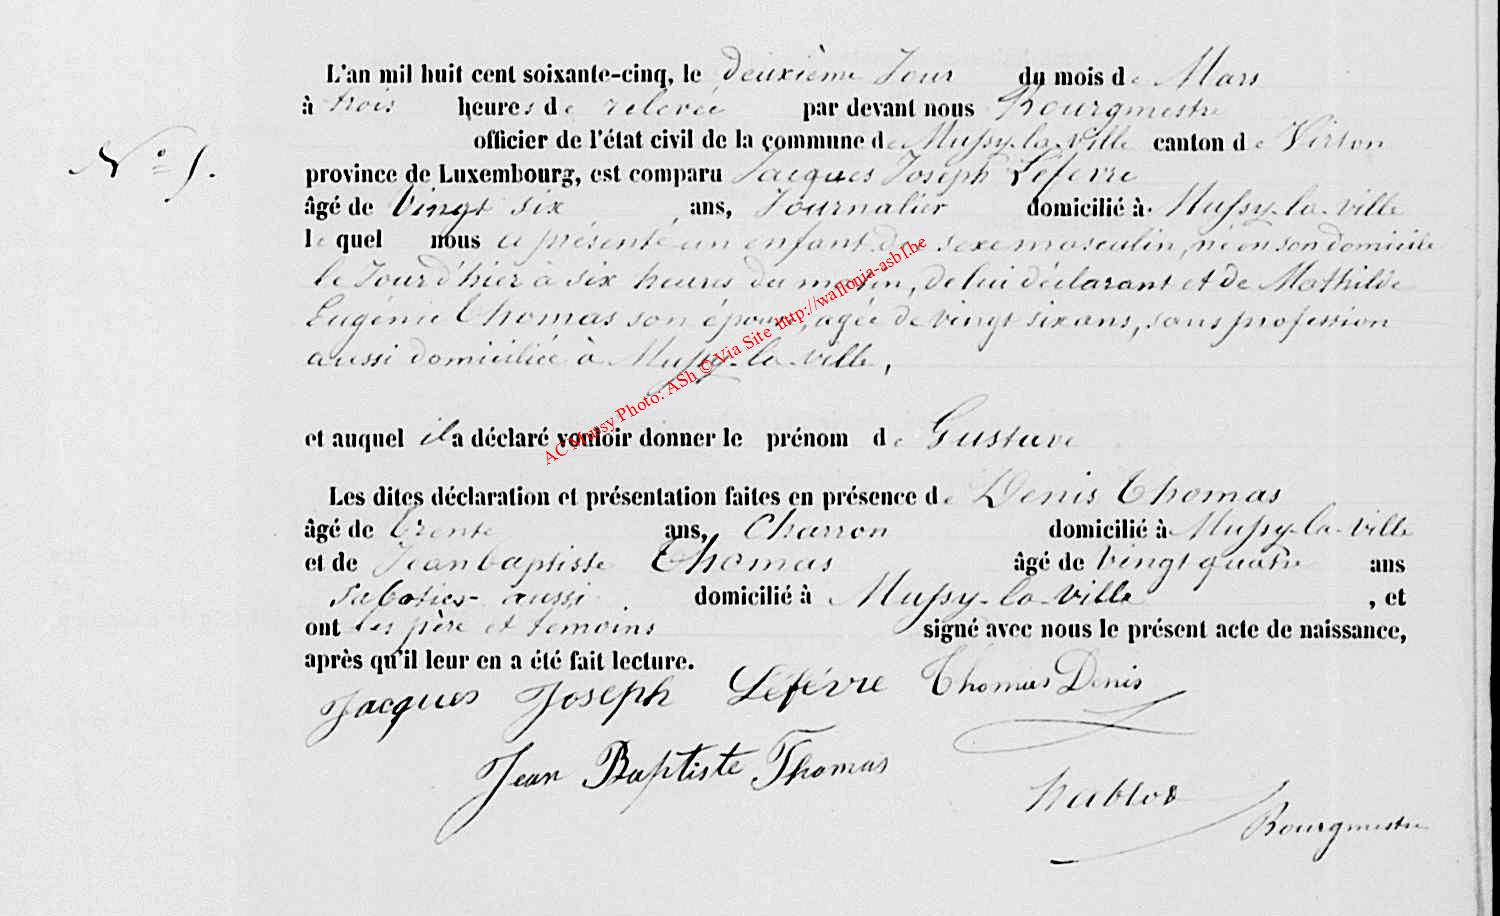 L'an mil huit cent soixante-cinq, le deuxième Jour du mois de Mars
à trois heures de relevée par devant nous Bourgmestre
officier de l'état civil de la commune de Mussy-la-ville canton de Virton
N° 5.
province de Luxembourg, est comparu Jacques Joseph Lefèvre
âgé de Vingt six ans, Journalier domicilié à Mussy-la-ville
lequel nous a présenté un enfant du sexe masculin, né en son domicile
le Jour d'hier à six heures du matin, de lui déclarant et de Mathilde
Eugénie Thomas son épouse, agée de vingt six ans, sans profession
aussi domiciliée à Mussy-la-ville,
et auquel il a déclaré vouloir donner le prénom de Gustave
Les dites déclaration et présentation faites en présence de Denis Thomas
âgé de trente ans, Charron domicilié à Mussy-la-ville
et de Jean baptiste Thomas âgé de vingt quatre ans
Sabotier aussi domicilié à Mussy-la-ville, et
ont les père et temoins signé avec nous le présent acte de naissance,
après qu'il leur en a été fait lecture.
Jacques Joseph Lefévre Thomas Denis
Jean Baptiste Thomas
Bourgmestre
AC Mussy Photo: ASh © Via Site http://wallonia-asbl.be